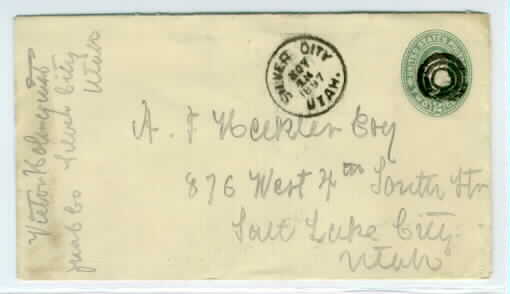 Victor Holmquist
Juab Co Silver City
Utah
SILVER CITY
NOV
1897
UTAH.
UNITED STATES
A. F Heckler Esq
876 West 4th South Str
Salt Lake City
Utah